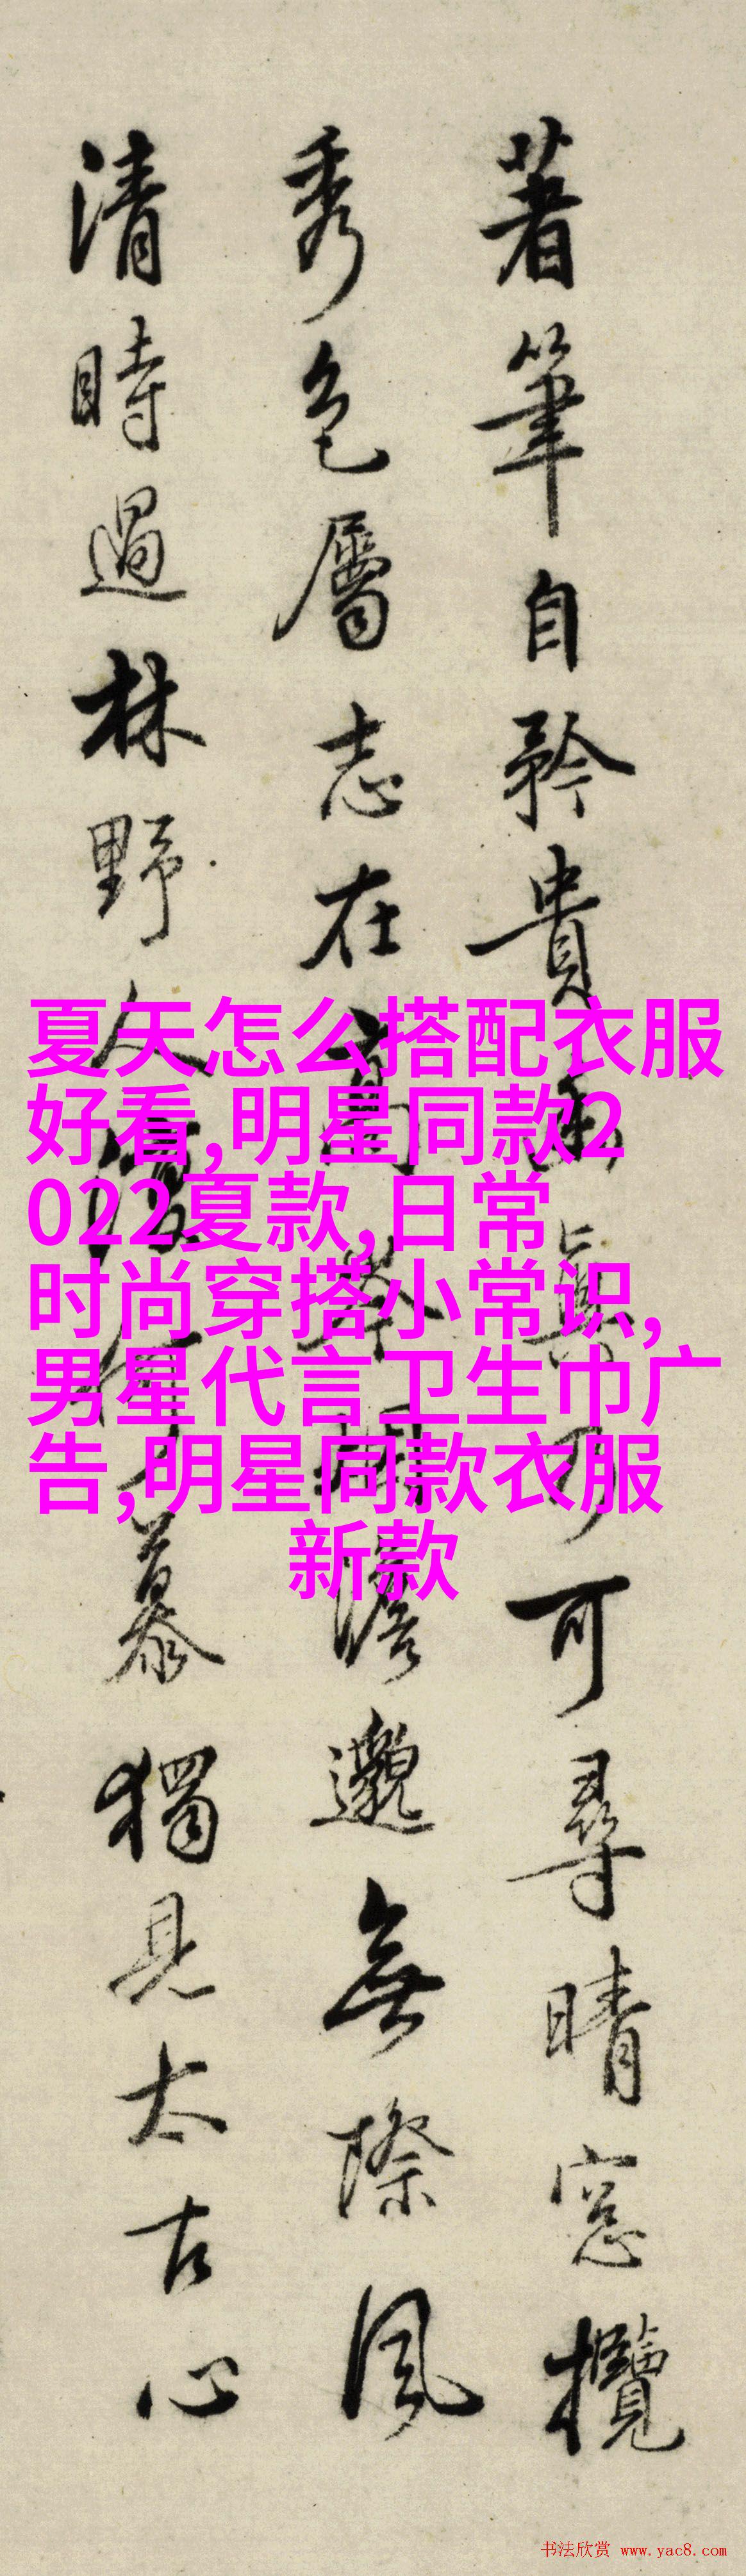 著筆自矜貴
可尋晴窓攬
秀色屬志在高
澹邈無際風
清時過林野人
慕獨見太古心
夏天怎么搭配衣服
好看,明星同款2
022夏款,日常
时尚穿搭小常识,
男星代言卫生巾广
告,明星同款衣服
新款
书法欣赏 www.yac8.com